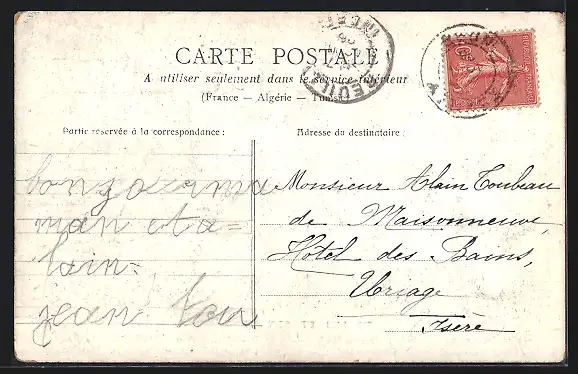 CARTE POSTALE
A utiliser seulement dans le service intérieur
(France — Algérie — Tunisie)
Partie réservée à la correspondance :
Adresse du destinataire :
bonjour ma
man et a=
lain=
jean Tou
Monsieur Alain Toubeau
de Maisonneuve,
Hôtel des Bains,
Uriage
Isère